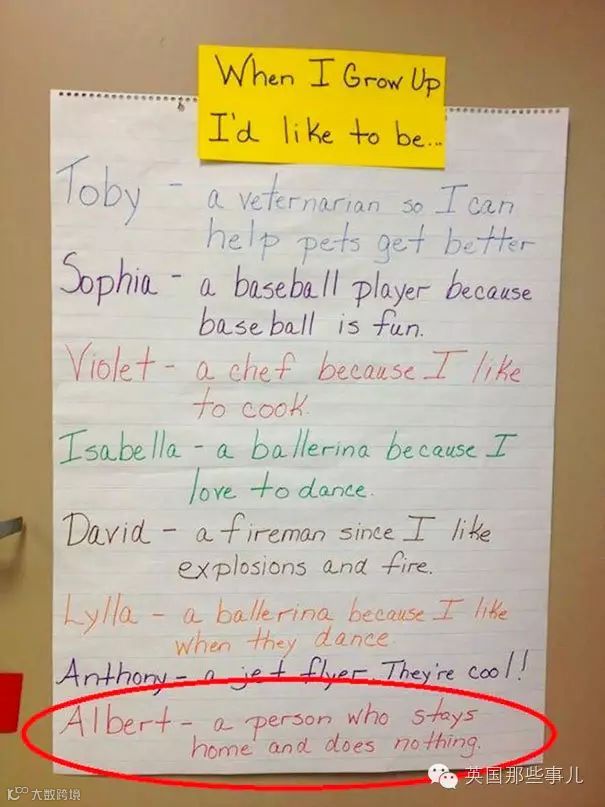 When I Grow Up
I'd like to be...
Toby - a veternarian so I can
help pets get better
Sophia - a baseball player because
baseball is fun.
Violet - a chef because I like
to cook.
Isabella - a ballerina because I
love to dance.
David - a fireman since I like
explosions and fire.
Lylla - a ballerina because I like
when they dance.
Anthony - a jet flyer. They're cool!
Albert - a person who stays
home and does nothing.
英国那些事儿
大数跨境